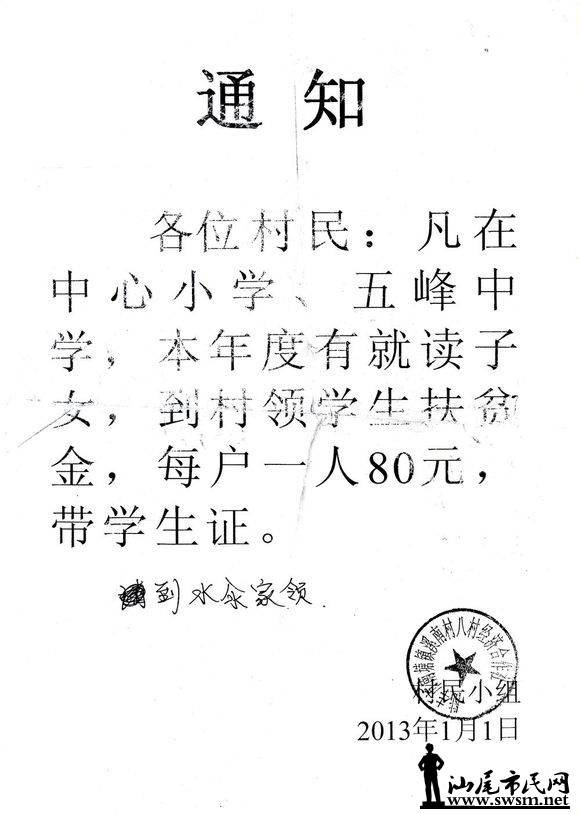 通知
各位村民：凡在
中心小学、五峰中
学，本年度有就读子
女，到村领学生扶贫
金，每户一人80元，
带学生证。
到水汆家领.
溪南村八村经济合作
村民小组
2013年1月1日
汕尾市民网
www.swsm.net